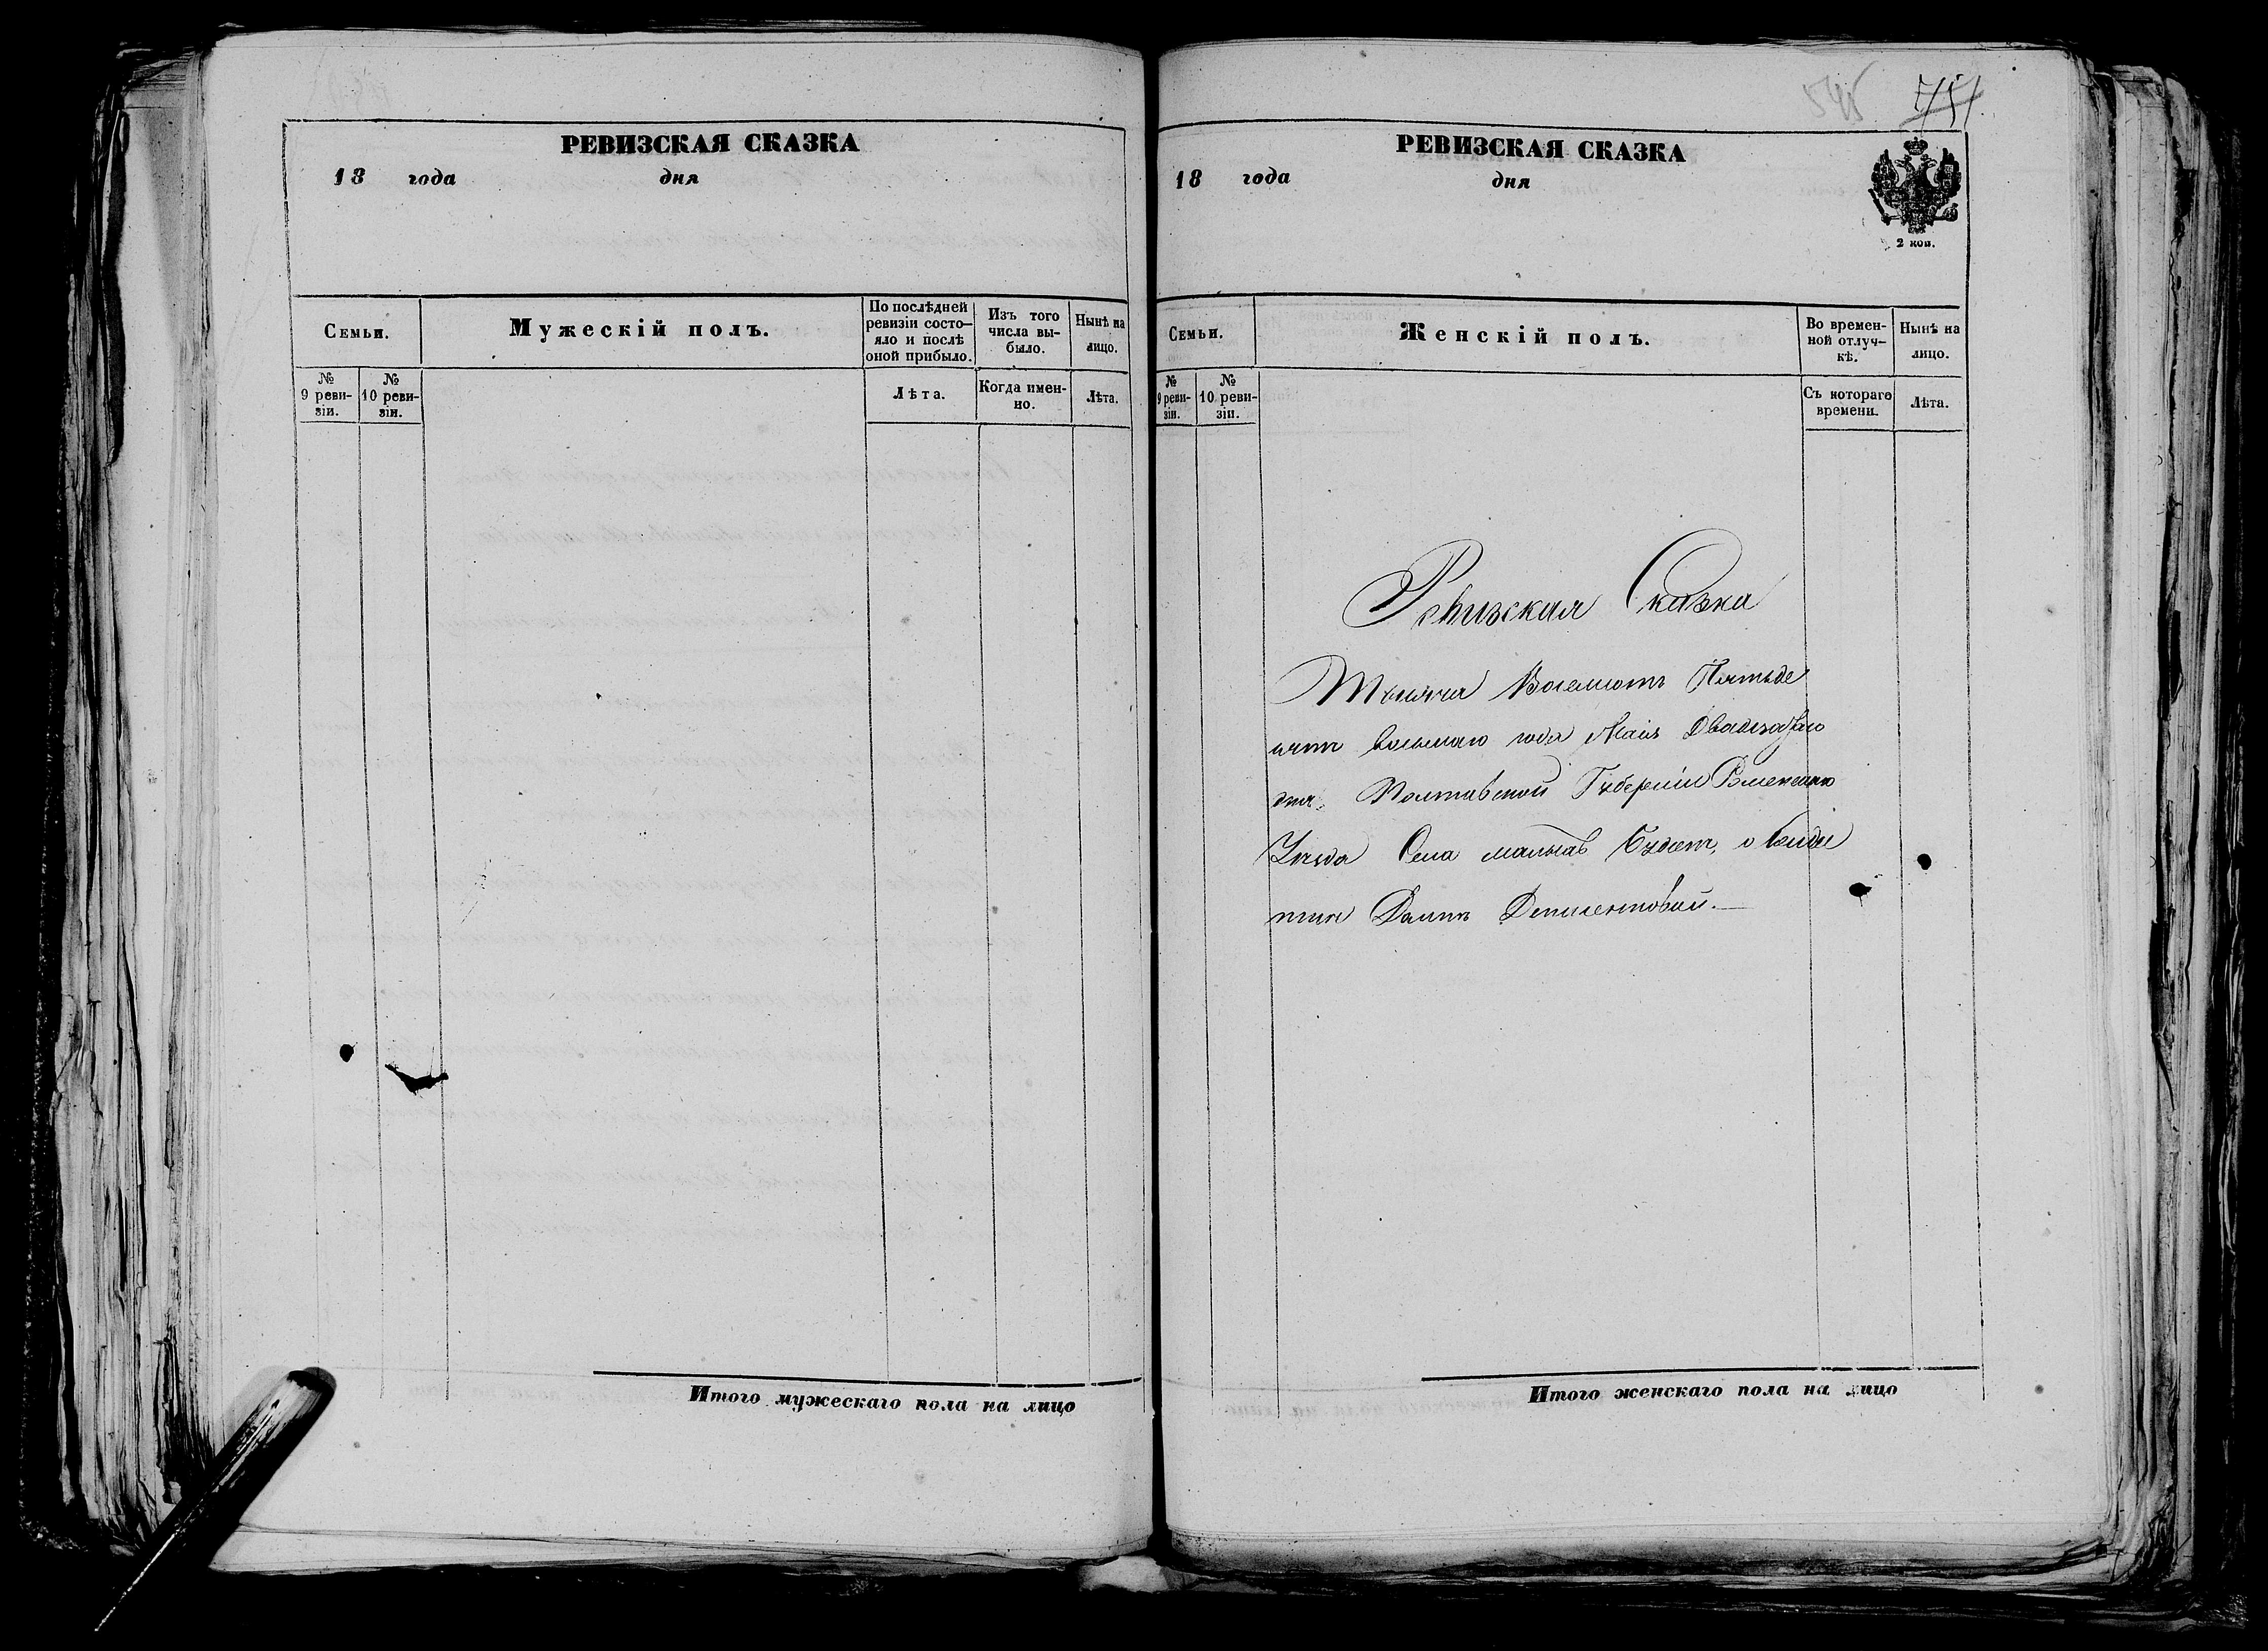 РЕВИЗСКАЯ СКАЗКА
18 года дня
Семьи.
Мужескій полъ.
По послѣдней ревизіи состо-
яло и послѣ оной прибыло.
Изъ того числа вы-
было.
Нынѣ на лицо.
№ 9 реви-
зіи.
№ 10 реви-
зіи.
Лѣта.
Когда имен-
но.
Лѣта.
Итого мужескаго пола на лицо
545 751
РЕВИЗСКАЯ СКАЗКА
18 года дня
2 коп.
Семьи.
Женскій полъ.
Во времен-
ной отлуч-
кѣ.
Нынѣ на лицо.
№ 9 реви-
зіи.
№ 10 реви-
зіи.
Съ котораго времени.
Лѣта.
Ревизская Сказка
Тысяча Восемсотъ Пятьде
сятъ восьмаго года Маія Двадцатаго
дня, Полтавской Губерніи Роменскаго
Уезда Села малыхъ Будокъ, о
Итого женскаго пола на лицо